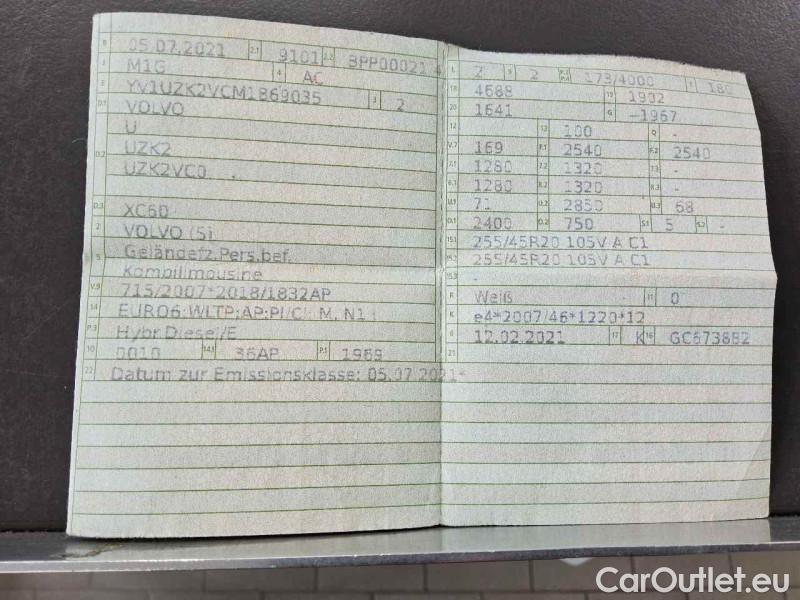 B 05.07.2021 2.1 9101 2.2 BPP00021 4
J M1G 4 AC
E YV1UZK2VCM1869035 3 2
D.1 VOLVO
U
UZK2
UZK2VC0
D.3 XC60
2 VOLVO (S)
5 Geländefz.Pers.bef.
Kombilimousine
V.9 715/2007*2018/1832AP
14 EURO6;WLTP;AP;PI/CI; M, N1 I
P.3 Hybr.Diesel/E
10 0010 14.1 36AP P.1 1969
22 Datum zur Emissionsklasse: 05.07.2021*
L 2 9 2 P.2 P.4 173/4000 T 180
18 4688 19 1902
20 1641 G -1967
12 13 100 Q -
V.7 169 F.1 2540 F.2 2540
7.1 1280 7.2 1320 7.3 -
8.1 1280 8.2 1320 8.3 -
U.1 71 U.2 2850 U.3 68
O.1 2400 O.2 750 S.1 5 S.2 -
15.1 255/45R20 105V A C1
15.2 255/45R20 105V A C1
15.3 -
R Weiß 11 0
K e4*2007/46*1220*12
6 12.02.2021 17 K 16 GC673882
21
CarOutlet.eu